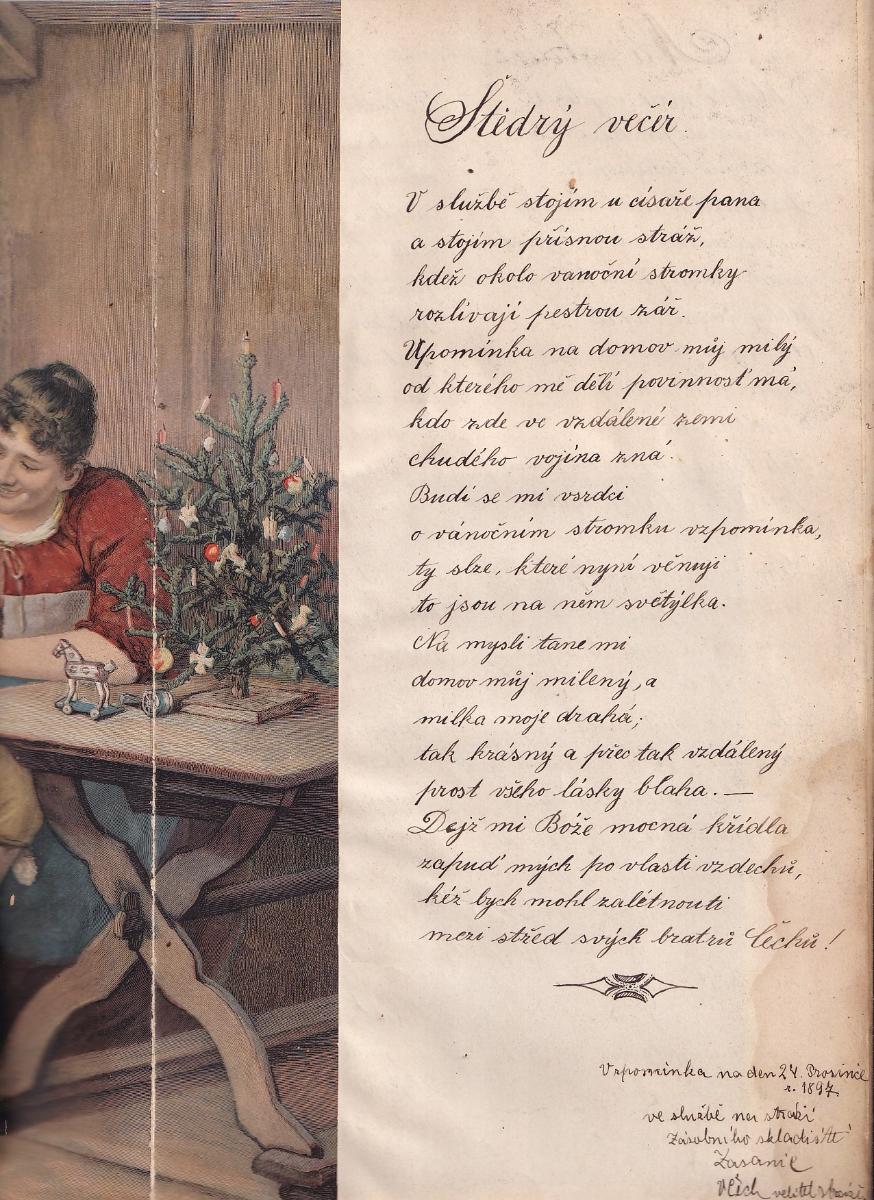 Štědrý večér.
V službě stojím u císaře pana
a stojím přísnou stráž,
kdež okolo vanoční stromky
rozlívají pestrou zář.
Upomínka na domov můj milý
od kterého mě dělí povinnosť má,
kdo zde ve vzdálené zemi
chudého vojína zná.
Budí se mi vsrdci
o vánočním stromku vzpomínka,
ty slze, které nyní věnuji
to jsou na něm světýlka.
Na mysli tane mi
domov můj milený, a
milka moje drahá;
tak krásný a přec tak vzdálený
prost všeho lásky blaha. —
Dejž mi Bože mocná křídla
zapuď mých po vlasti vzdechů,
kéž bych mohl zalétnouti
mezi střed svých bratrů Čechů!
Vzpomínka na den 24. Prosince
r. 1897.
ve službě na stráži
Zásobního skladiště
Zasanie
velitel stráže